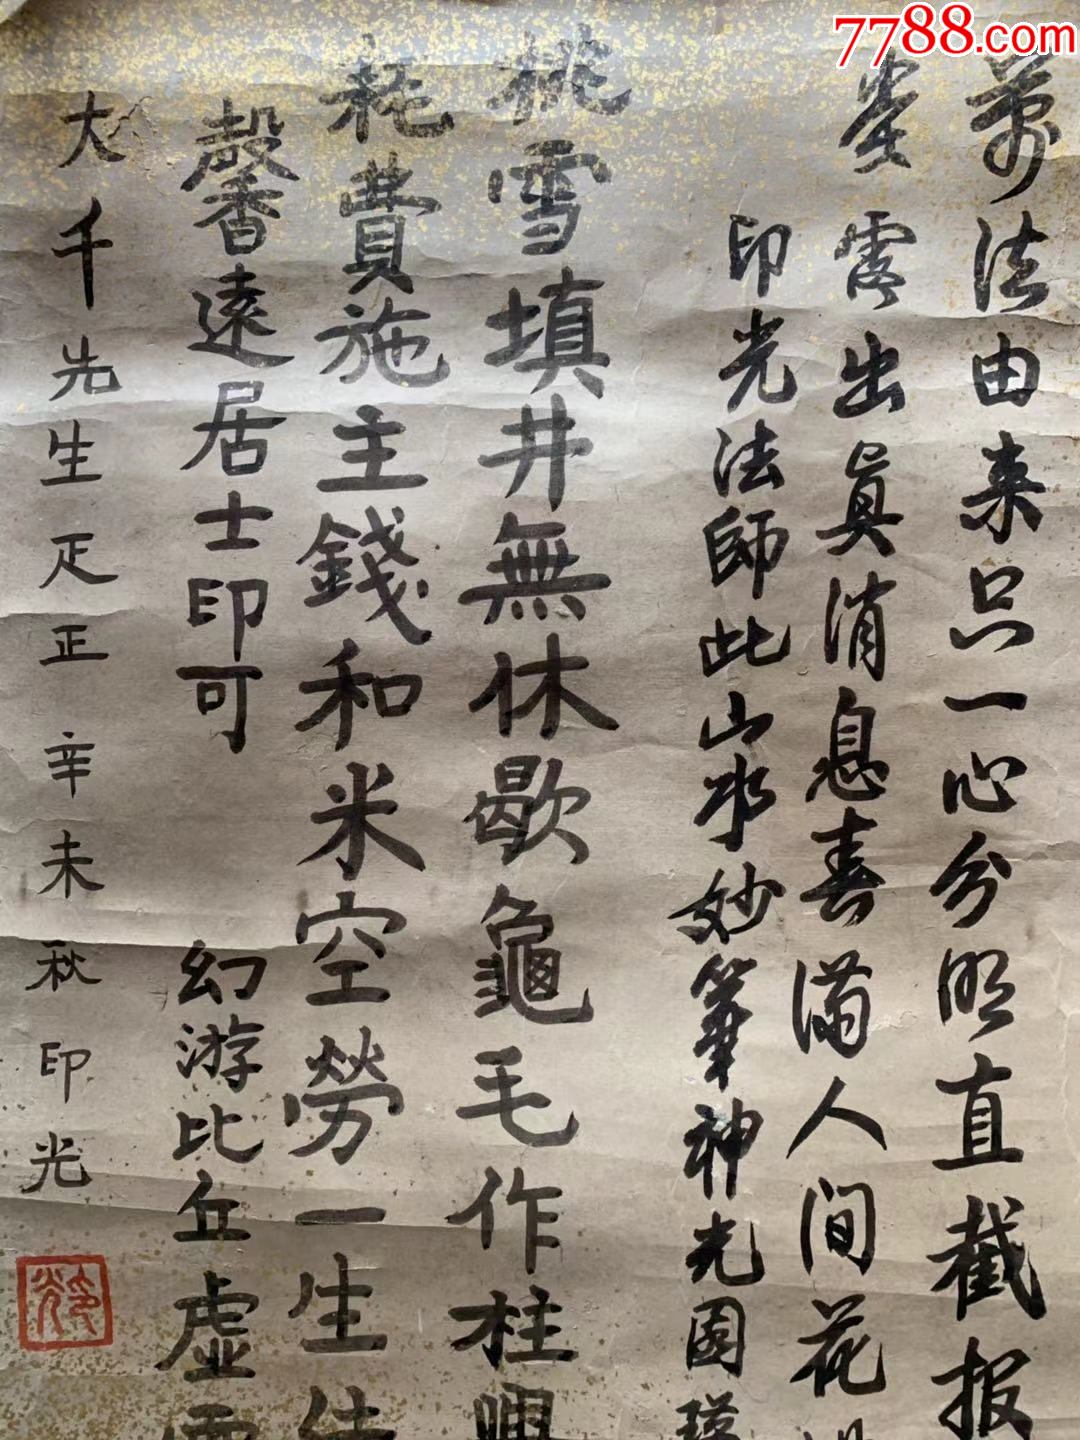 7788.com
萬法由来只一心分明直截报
露出真消息春满人间花
印光法師此山水妙筆神光圆瑛
挑雪填井無休歇龜毛作柱興
耗費施主錢和米空勞一生
馨遠居士印可 幻游比丘虚雲
大千先生疋正 辛未 秋 印光